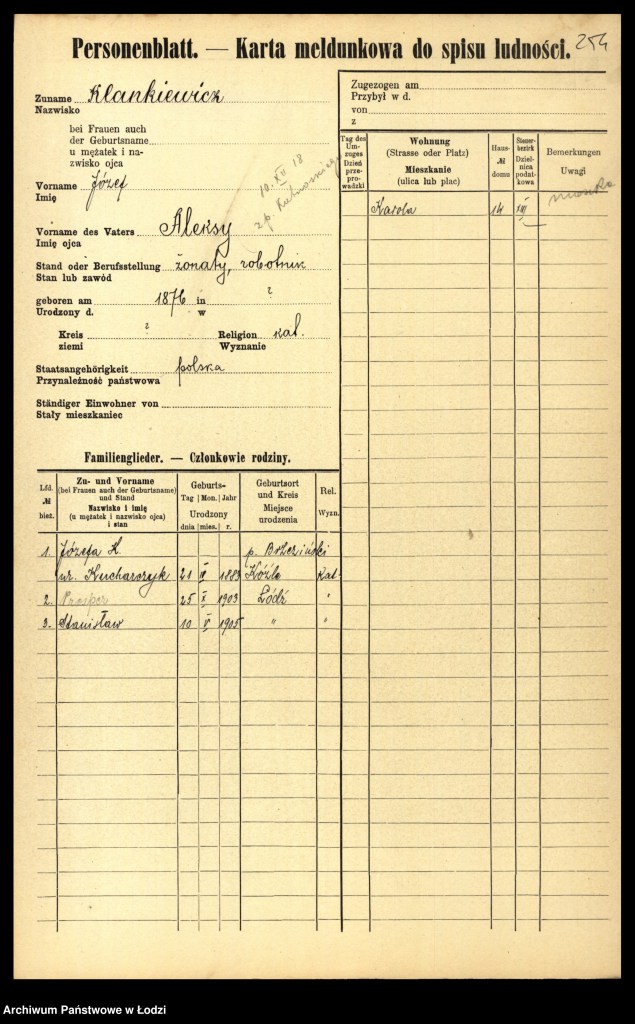 254
Personenblatt. — Karta meldunkowa do spisu ludności.
Zuname Klankiewicz
Nazwisko
bei Frauen auch
der Geburtsname
u mężatek i na-
zwisko ojca
Vorname Józef
Imię
10. XII 18
Vorname des Vaters Aleksy
Imię ojca
Stand oder Berufsstellung żonaty, robotnik
Stan lub zawód
geboren am 1876 in ?
Urodzony d. w
Kreis ? Religion kat.
ziemi Wyznanie
Staatsangehörigkeit polska
Przynależność państwowa
Ständiger Einwohner von
Stały mieszkaniec
Zugezogen am
Przybył w d.
von
z
Tag des Um-zuges Dzień prze-pro-wadzki
Wohnung
(Strasse oder Platz)
Mieszkanie
(ulica lub plac)
Haus-
№
domu
Steuer-bezirk Dziel-nica podat-kowa
Bemerkungen
Uwagi
Karola 14 XIII
Familienglieder. — Członkowie rodziny.
Lfd.
№
bież.
Zu- und Vorname
(bei Frauen auch der Geburtsname)
und Stand
Nazwisko i imię
(u mężatek i nazwisko ojca)
i stan
Geburts-
Tag Mon. Jahr
Urodzony
dnia mies. r.
Geburtsort
und Kreis
Miejsce
urodzenia
Rel.
Wyzn.
1. Józefa K. p. Brzeziński
ur. Kucharczyk 21 IV 1883 Koźle Kat.
2. 25 X 1903 Łódź "
3. Stanisław 10 V 1905 " "
Archiwum Państwowe w Łodzi